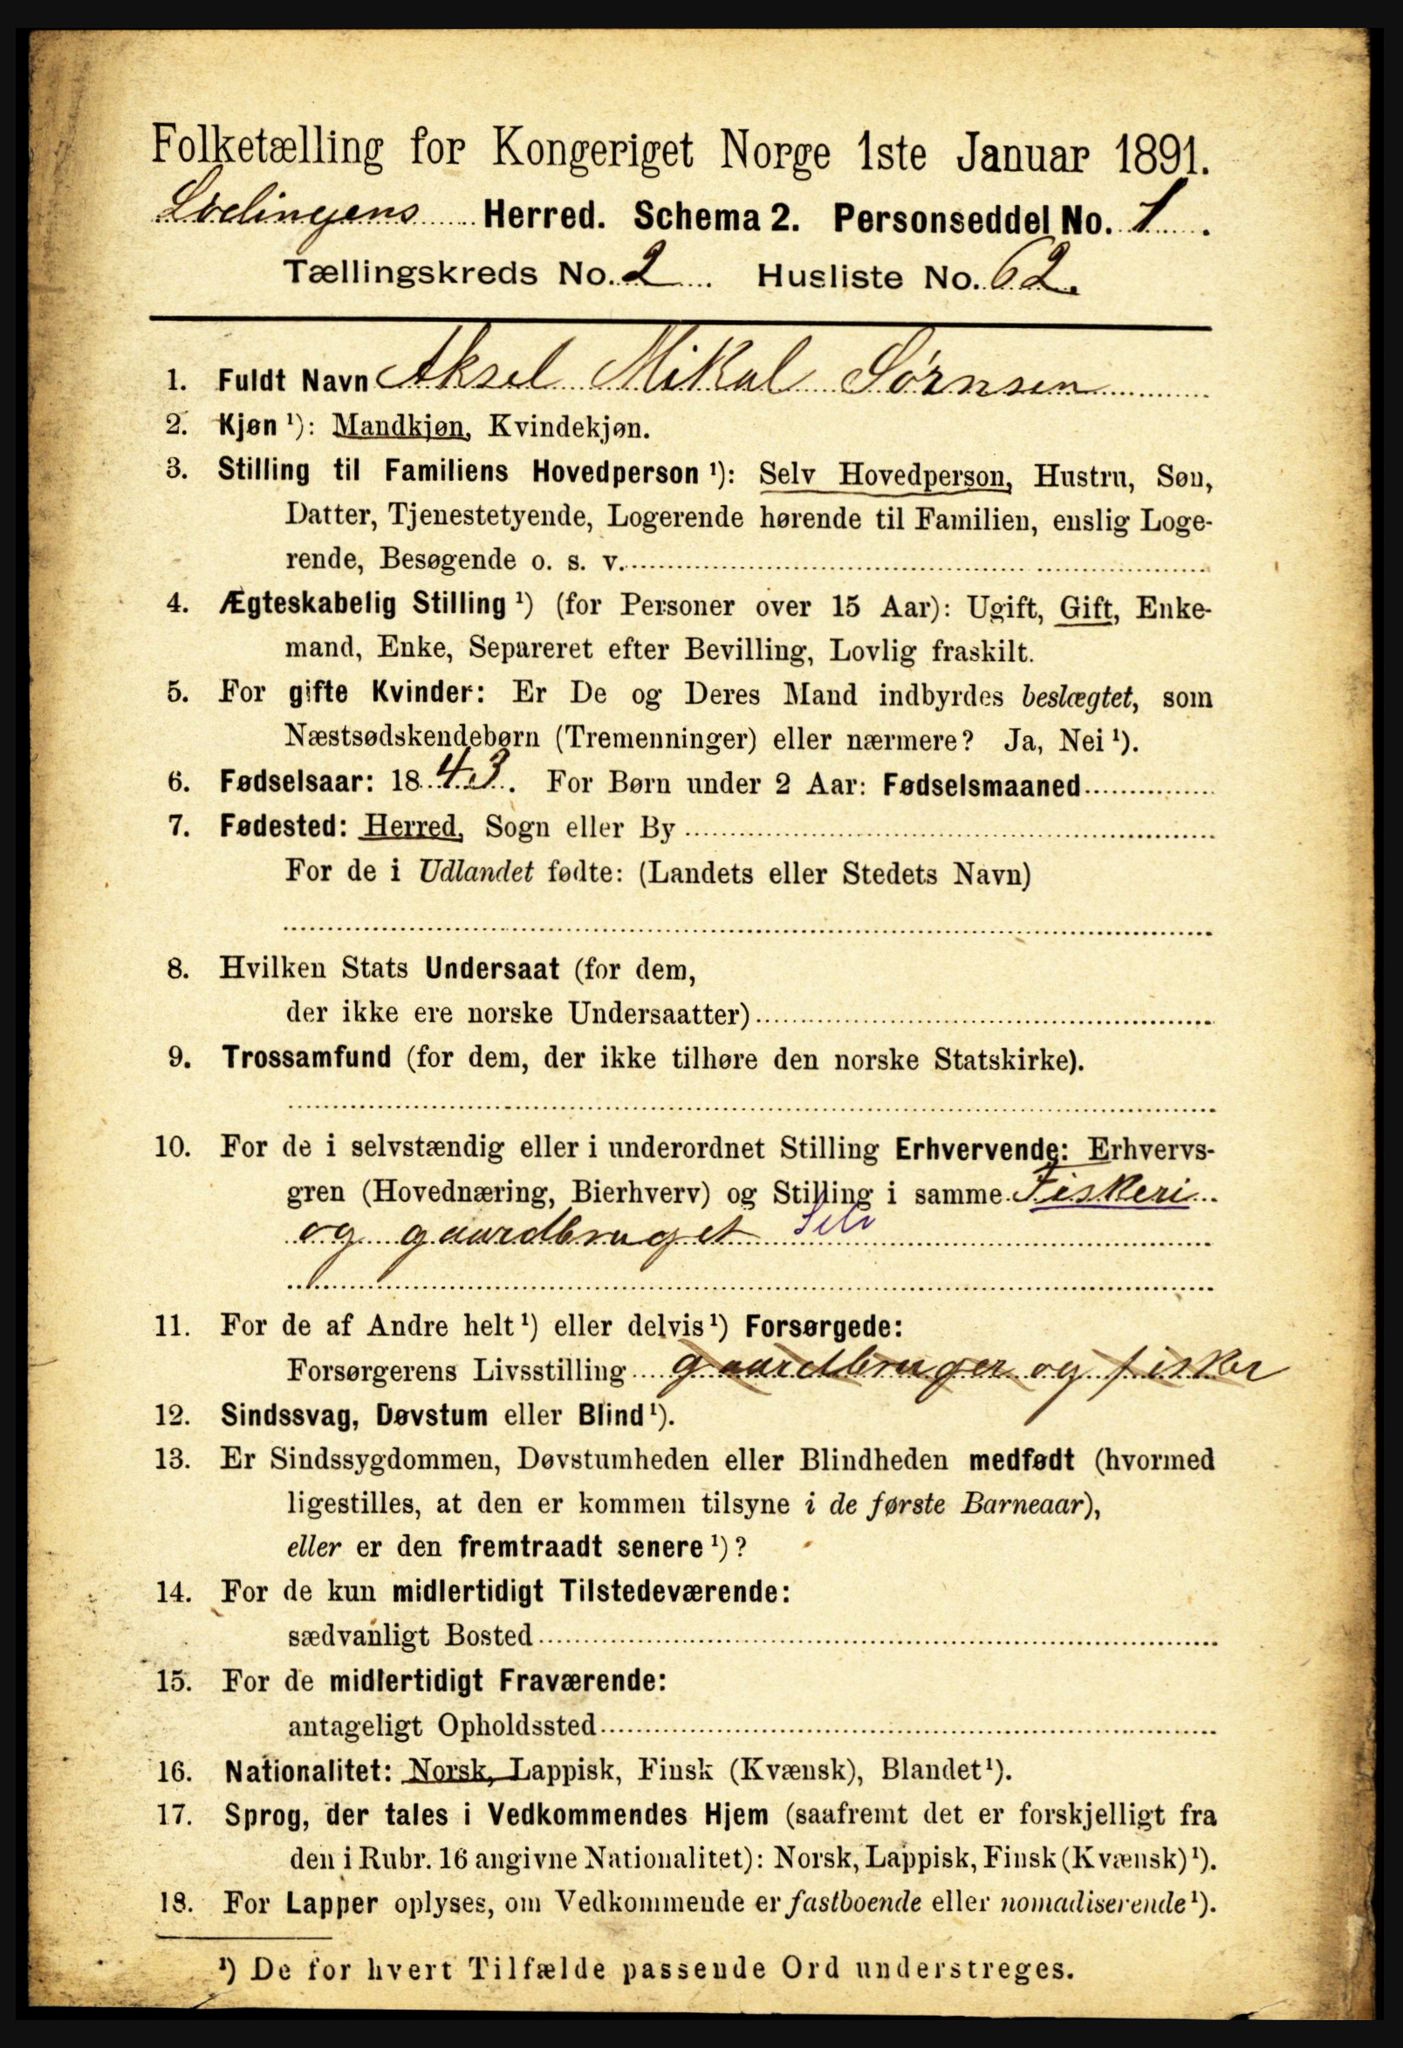 Folketælling for Kongeriget Norge 1ste Januar 1891.
Lødingens Herred. Schema 2. Personseddel No. 1.
Tællingskreds No. 2. Husliste No. 62.
1. Fuldt Navn Aksel Mikal Sørnsen
2. Kjøn¹): Mandkjøn, Kvindekjøn.
3. Stilling til Familiens Hovedperson¹): Selv Hovedperson, Hustru, Søn,
Datter, Tjenestetyende, Logerende hørende til Familien, enslig Loge-
rende, Besøgende o. s. v.
4. Ægteskabelig Stilling¹) (for Personer over 15 Aar): Ugift, Gift, Enke-
mand, Enke, Separeret efter Bevilling, Lovlig fraskilt.
5. For gifte Kvinder: Er De og Deres Mand indbyrdes beslægtet, som
Næstsødskendebørn (Tremenninger) eller nærmere? Ja, Nei¹).
6. Fødselsaar: 1843. For Børn under 2 Aar: Fødselsmaaned
7. Fødested: Herred, Sogn eller By
For de i Udlandet fødte: (Landets eller Stedets Navn)
8. Hvilken Stats Undersaat (for dem,
der ikke ere norske Undersaatter)
9. Trossamfund (for dem, der ikke tilhøre den norske Statskirke).
10. For de i selvstændig eller i underordnet Stilling Erhvervende: Erhvervs-
gren (Hovednæring, Bierhverv) og Stilling i samme Fiskeri
og gaardbruget Selv
11. For de af Andre helt¹) eller delvis¹) Forsørgede:
Forsørgerens Livsstilling gaardbruger og fisker
12. Sindssvag, Døvstum eller Blind¹).
13. Er Sindssygdommen, Døvstumheden eller Blindheden medfødt (hvormed
ligestilles, at den er kommen tilsyne i de første Barneaar),
eller er den fremtraadt senere¹)?
14. For de kun midlertidigt Tilstedeværende:
sædvanligt Bosted
15. For de midlertidigt Fraværende:
antageligt Opholdssted
16. Nationalitet: Norsk, Lappisk, Finsk (Kvænsk), Blandet¹).
17. Sprog, der tales i Vedkommendes Hjem (saafremt det er forskjelligt fra
den i Rubr. 16 angivne Nationalitet): Norsk, Lappisk, Finsk (Kvænsk)¹).
18. For Lapper oplyses, om Vedkommende er fastboende eller nomadiserende¹).
¹) De for hvert Tilfælde passende Ord understreges.